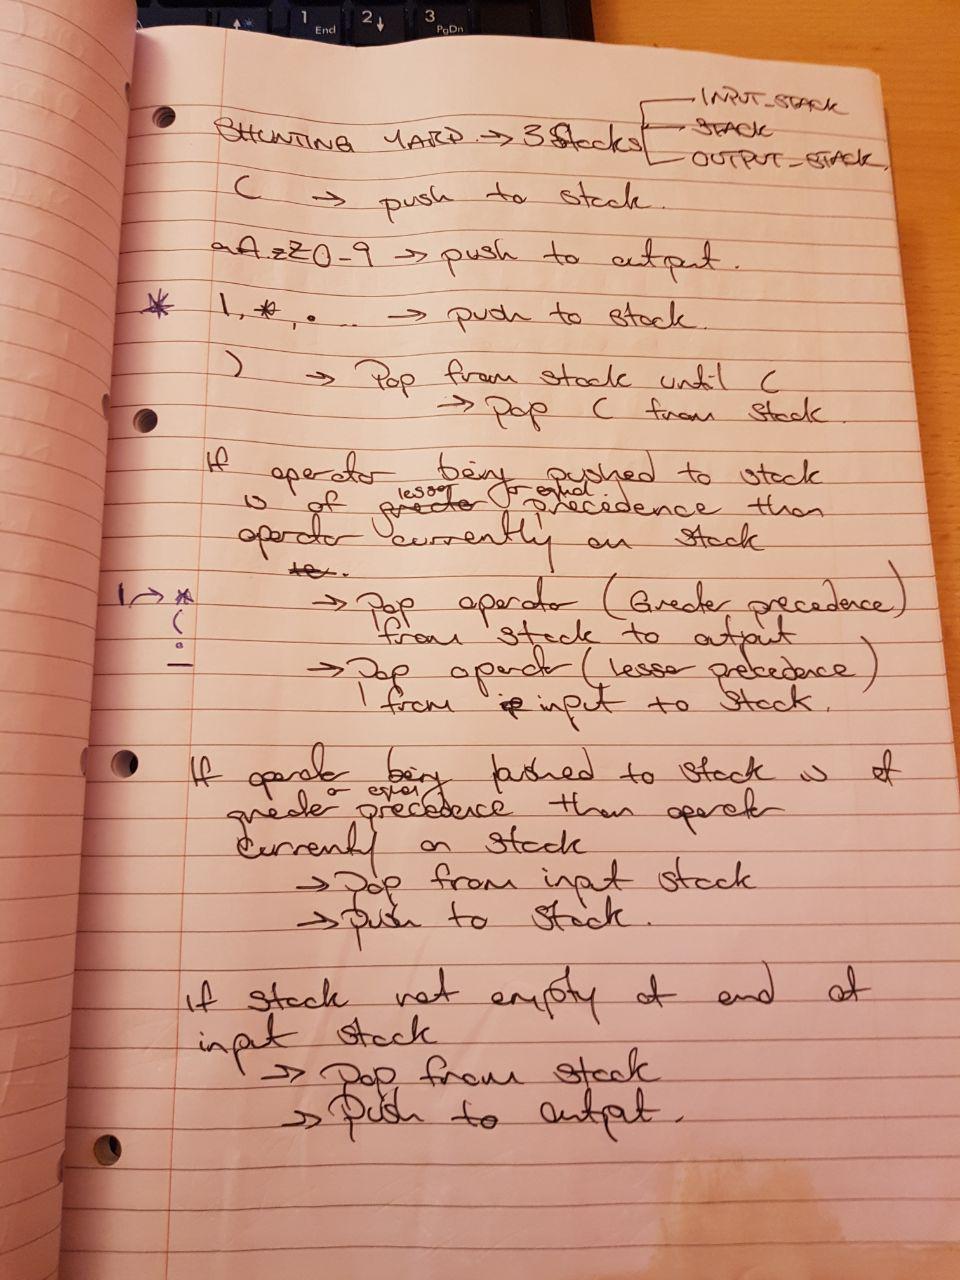 1 End
2 ↓
3 PgDn
SHUNTING YARD → 3 Stacks
INPUT_STACK
STACK
OUTPUT_STACK
( → push to stack.
aA-zZ0-9 → push to output.
* |, *, . .. → push to stack.
) → Pop from stack until (
→ Pop ( from stack
If operator being pushed to stack
lesser or equal
is of greater precedence than
operator currently on stack
to.
→ Pop operator (Greater precedence)
from stack to output
→ Pop operator (lesser precedence)
from ip input to stack.
| → *
(
.
If operator being pushed to stack is of
or equal
greater precedence than operator
currently on stack
→ Pop from input stack
→ push to stack.
if stack not empty at end of
input stack
→ Pop from stack
→ Push to output.